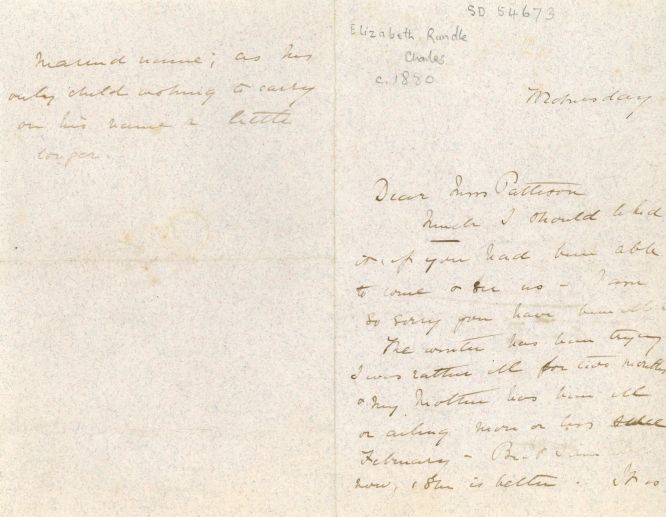 married name; as his
only child wishing to carry
on his name a little
longer.
SD 54673
Elizabeth Rundle
Charles
c. 1880
Wednesday
Dear Miss Pattison
Much I should liked
it if you had been able
to come & see us - I am
so sorry you have been ill.
The winter has been trying
I was rather ill for two months
& my Mother has been ill
or ailing more or less since
February - But I am
now, & she is better. It is